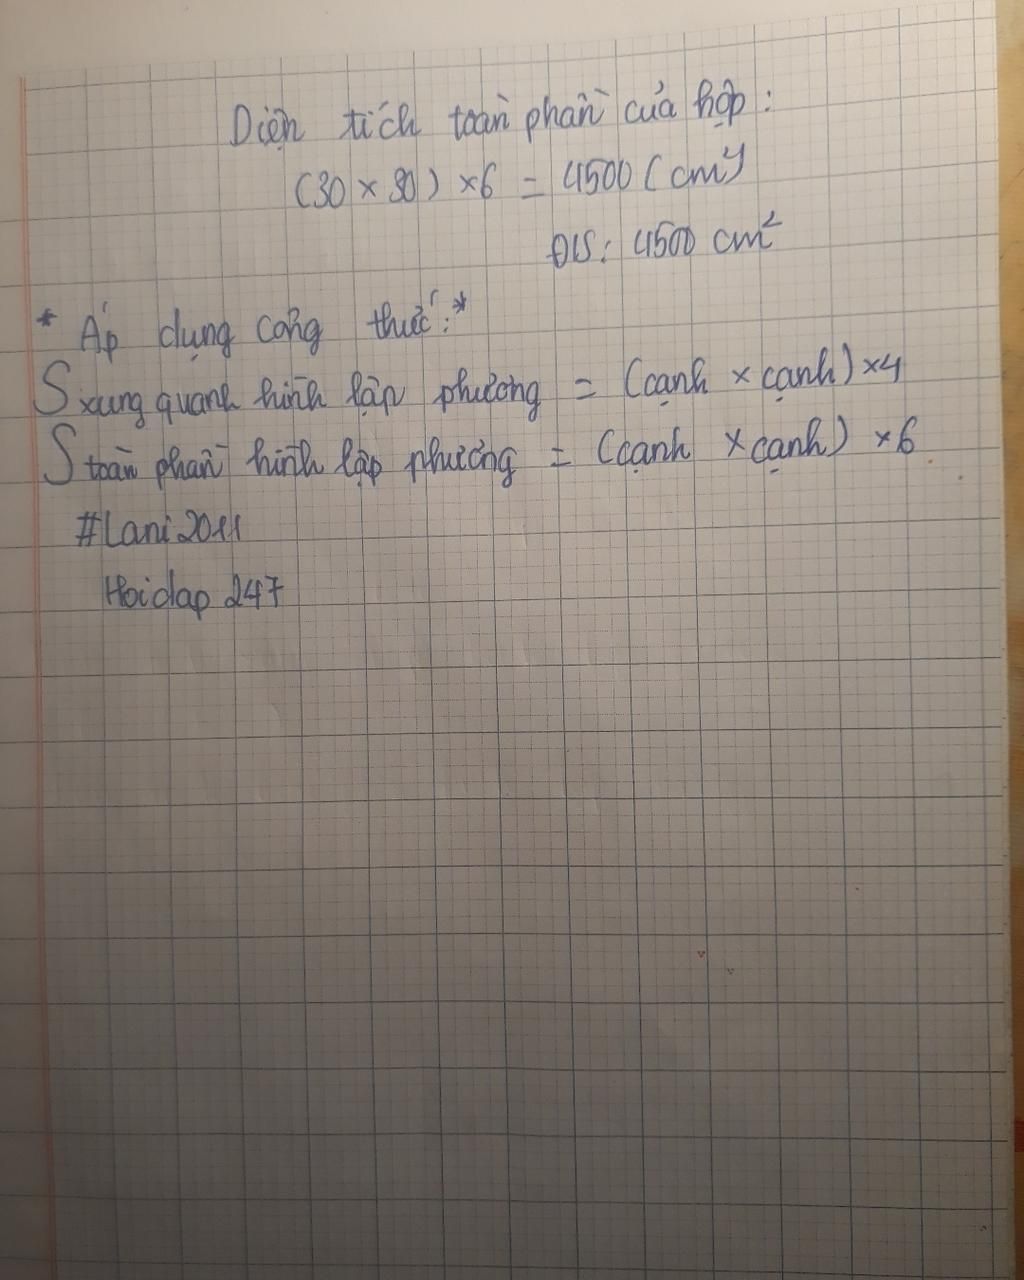 Diện tích toàn phần của hộp:
(30 × 30) × 6 = 4500 (cm²)
ĐS: 4500 cm²
* Áp dụng công thức: *
S xung quanh hình lập phương = (cạnh × cạnh) × 4
S toàn phần hình lập phương = (cạnh × cạnh) × 6
#Lani2011
Hoidap 247